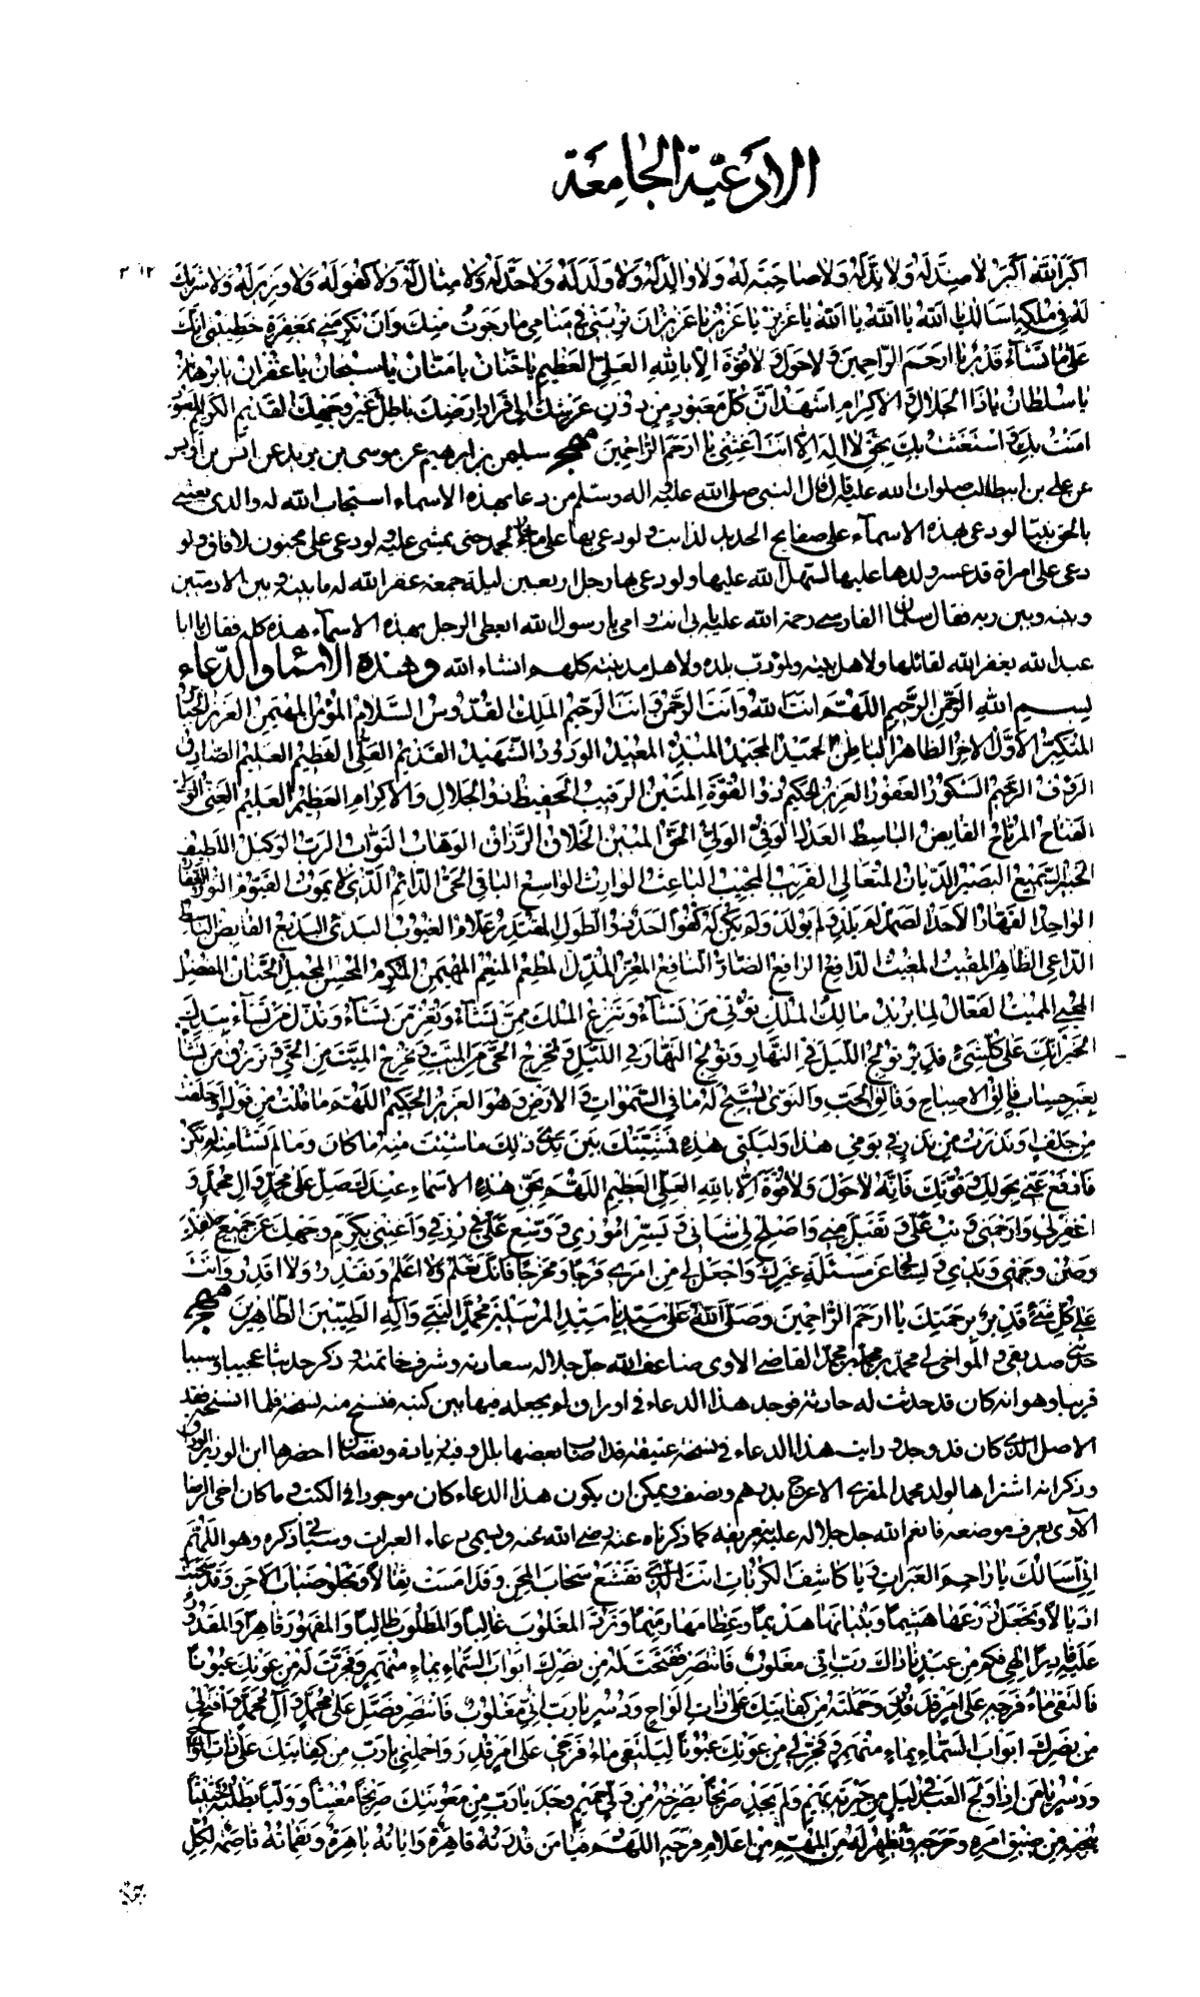 الادعية الجامعة
٢١٢
اكبر الله اكبر لا ضد له ولا ند له ولا صاحبة له ولا والد له ولا ولد له ولا حد له ولا مثال له ولا كفو له ولا وزير له ولا شريك
له في ملكه اسالك يا الله يا الله يا الله يا عزيز يا عزيز يا عزيز ان تريني في منامي ما رجوت منك وان تكرمني بمغفرة خطيئتي انك
على ما تشاء قدير يا ارحم الراحمين ولا حول ولا قوة الا بالله العلي العظيم يا حنان يا منان يا سبحان يا غفران يا برهان
يا سلطان يا ذا الجلال والاكرام اشهد ان كل معبود من دون عرشك الى قرار ارضك باطل غير وجهك القديم الكريم المعبود
امنت بك واستغثت بك بحق لا اله الا انت اغثني يا ارحم الراحمين مهج سليمن بن ابرهيم عن موسى بن يزيد عن انس بن اويس
عن علي بن ابيطالب صلوات الله عليه قال قال النبي صلى الله عليه واله وسلم من دعا بهذه الاسماء استجاب الله له والذي بعثني
بالحق نبيا لو دعي بهذه الاسماء على صفايح الحديد لذابت ولو دعي بها على ماء جار لجمد حتى يمشى عليه ولو دعي على مجنون لافاق ولو
دعى على امراة قد عسر ولدها عليها لسهل الله عليها ولو دعى بها رجل اربعين ليلة جمعة غفر الله له ما بينه وبين الادميين
وبينه وبين ربه فقال سلمان الفارسي رحمة الله عليه بابي انت وامي يا رسول الله ايعطى الرجل بهذه الاسماء هذه كله فقال يا ابا
عبد الله يغفر الله لقائلها ولاهل بيته ولمؤدب بلده ولاهل مدينته كلهم انشاء الله وهذه الاسماء والدعاء
بسم الله الرحمن الرحيم اللهم انت الله وانت الرحمن وانت الرحيم الملك القدوس السلام المؤمن المهيمن العزيز الجبار
المتكبر الاول الاخر الظاهر الباطن الحميد المجيد المبدئ المعيد الودود الشهيد القديم العلي العظيم العليم الصادق
الرؤف الرحيم الشكور الغفور العزيز الحكيم ذو القوة المتين الرقيب الحفيظ ذو الجلال والاكرام العظيم العليم الغني الولي
الفتاح المرتاح القابض الباسط العدل الوفي الولي الحق المبين الخلاق الرزاق الوهاب التواب الرب الوكيل اللطيف
الخبير السميع البصير الديان المتعالي القريب المجيب الباعث الوارث الواسع الباقي الحي الدائم الذي لا يموت القيوم النور الغفار
الواحد القهار الاحد الصمد لم يلد ولم يولد ولم يكن له كفوا احد ذو الطول المقتدر علام الغيوب البدئ البديع القابض الباسط
الداعي الظاهر المقيت المغيث الدافع الرافع الضار النافع المعز المذل المطعم المنعم المهيمن المكرم المحسن المجمل الحنان المفضل
المحيي المميت الفعال لما يريد مالك الملك تؤتي من تشاء وتنزع الملك ممن تشاء وتعز من تشاء وتذل من تشاء بيدك
الخير انك على كل شيء قدير تولج الليل في النهار وتولج النهار في الليل وتخرج الحي من الميت وتخرج الميت من الحي وترزق من تشاء
بغير حساب فالق الاصباح وفالق الحب والنوى يسبح له ما في السموات والارض وهو العزيز الحكيم اللهم ما قلت من قول او حلفت
من حلف او نذرت من نذر في يومي هذا وليلتي هذه فمشيتك بين يدي ذلك ما شئت منه ما كان وما لم تشا منه لم يكن
فادفع عني بحولك وقوتك فانه لا حول ولا قوة الا بالله العلي العظيم اللهم بحق هذه الاسماء عندك صل على محمد وال محمد و
اغفر لي وارحمني وتب علي وتقبل مني واصلح لي شاني ويسر اموري ووسع علي في رزقي واغنني بكرم وجهك عن جميع خلقك
وصن وجهي ويدي ولساني عن مسئلة غيرك واجعل لي من امري فرجا ومخرجا فانك تعلم ولا اعلم وتقدر ولا اقدر وانت
على كل شيء قدير برحمتك يا ارحم الراحمين وصلى الله على سيدنا سيد المرسلين محمد النبي وآله الطيبين الطاهرين مهج
حدثني صديقي والمواخي لي محمد بن محمد بن محمد القاضي الاوي ضاعف الله جل جلاله سعادته وشرف خاتمته وذكر حديثا عجيبا وسببا
غريبا وهو انه كان قد حدثت له حادثة فوجد هذا الدعاء في اوراق لم يجعله فيها بين كتبه فنسخ منه نسخة فلما انسخه فقد
الاصل الذي كان قد وجده ورايت هذا الدعاء في نسخة عتيقة قد اصاب بعضها بلل وفيه زيادة ونقصان احضرها ابن الوزير الوراق
وذكر انه اشتراها لولد محمد المقري الاعرج بدرهم ونصف ويمكن ان يكون هذا الدعاء كان موجودا في الكتب وما كان اخي الرضا
الآوي يعرف موضعه فانعم الله جل جلاله عليه بتعريفه كما ذكرناه عنه رضي الله عنه ويسمى دعاء العبرات وسياتي ذكره وهو اللهم
اني اسالك يا راحم العبرات ويا كاشف الكربات انت الذي تقشع سحاب المحن وقد امست ثقالا وتجلو ضباب الاحن وقد سحبت
اذيالا وتجعل زرعها هشيما وبنيانها هديما وعظامها رميما وترد المغلوب غالبا والمطلوب طالبا والمقهور قاهرا والمقدور
عليه قادرا الهي فكم من عبد ناداك رب اني مغلوب فانتصر ففتحت له من نصرك ابواب السماء بماء منهمر وفجرت له من عونك عيونا
فالتقى ماء فرجه على امر قد قدر وحملته من كفايتك على ذات الواح ودسر يا رب اني مغلوب فانتصر فصل على محمد وآل محمد وافتح لي
من نصرك ابواب السماء بماء منهمر وفجر لي من عونك عيونا ليلتقي ماء فرجي على امر قد قدر واحملني يا رب من كفايتك على ذات الواح
ودسر يا من اذا ولج العبد في ليل من حيرته يهيم ولم يجد صريخا يصرخه من ولي حميم وجد يا رب من معونتك صريخا مغيثا ووليا يطلبه حثيثا
ينجيه من ضيق امره وحرجه ويظهر له من المهم من اعلام فرجه اللهم فيا من قدرته قاهرة واياته باهرة ونقماته قاصمة لكل